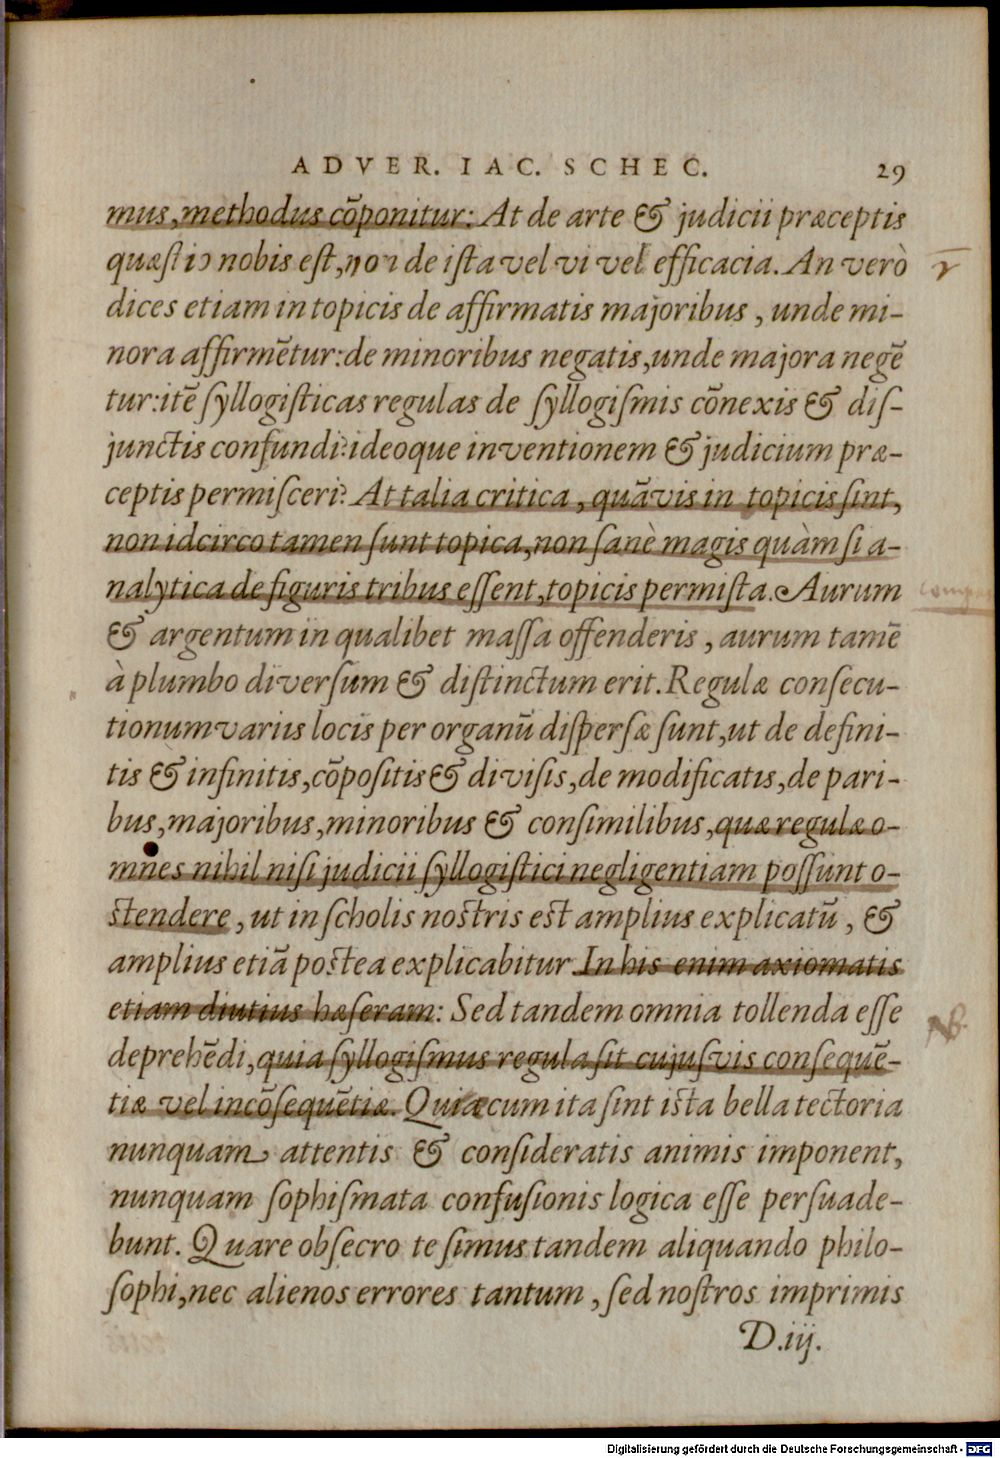 ADVER. IAC. SCHEC. 29
mus, methodus cōponitur: At de arte & judicii præceptis
quæstio nobis est, non de ista vel vi vel efficacia. An verò
dices etiam in topicis de affirmatis majoribus, unde mi-
nora affirmētur: de minoribus negatis, unde majora negē
tur: itē syllogisticas regulas de syllogismis cōnexis & dis-
junctis confundi? ideoque inventionem & judicium præ-
ceptis permisceri? At talia critica, quāvis in topicis sint,
non idcirco tamen sunt topica, non sanè magis quàm si a-
nalytica de figuris tribus essent, topicis permista. Aurum
& argentum in qualibet massa offenderis, aurum tamē
à plumbo diversum & distinctum erit. Regulæ consecu-
tionum variis locis per organū dispersæ sunt, ut de defini-
tis & infinitis, cōpositis & divisis, de modificatis, de pari-
bus, majoribus, minoribus & consimilibus, quæ regulæ o-
mnes nihil nisi judicii syllogistici negligentiam possunt o-
stendere, ut in scholis nostris est amplius explicatū, &
amplius etiā postea explicabitur. In his enim axiomatis
etiam diutius hæseram: Sed tandem omnia tollenda esse
deprehēdi, quia syllogismus regula sit cujusvis consequē-
tiæ vel incōsequētiæ. Quæ cum ita sint ista bella tectoria
nunquam attentis & consideratis animis imponent,
nunquam sophismata confusionis logica esse persuade-
bunt. Quare obsecro te simus tandem aliquando philo-
sophi, nec alienos errores tantum, sed nostros imprimis
D.iij.
NB.
Digitalisierung gefördert durch die Deutsche Forschungsgemeinschaft - DFG